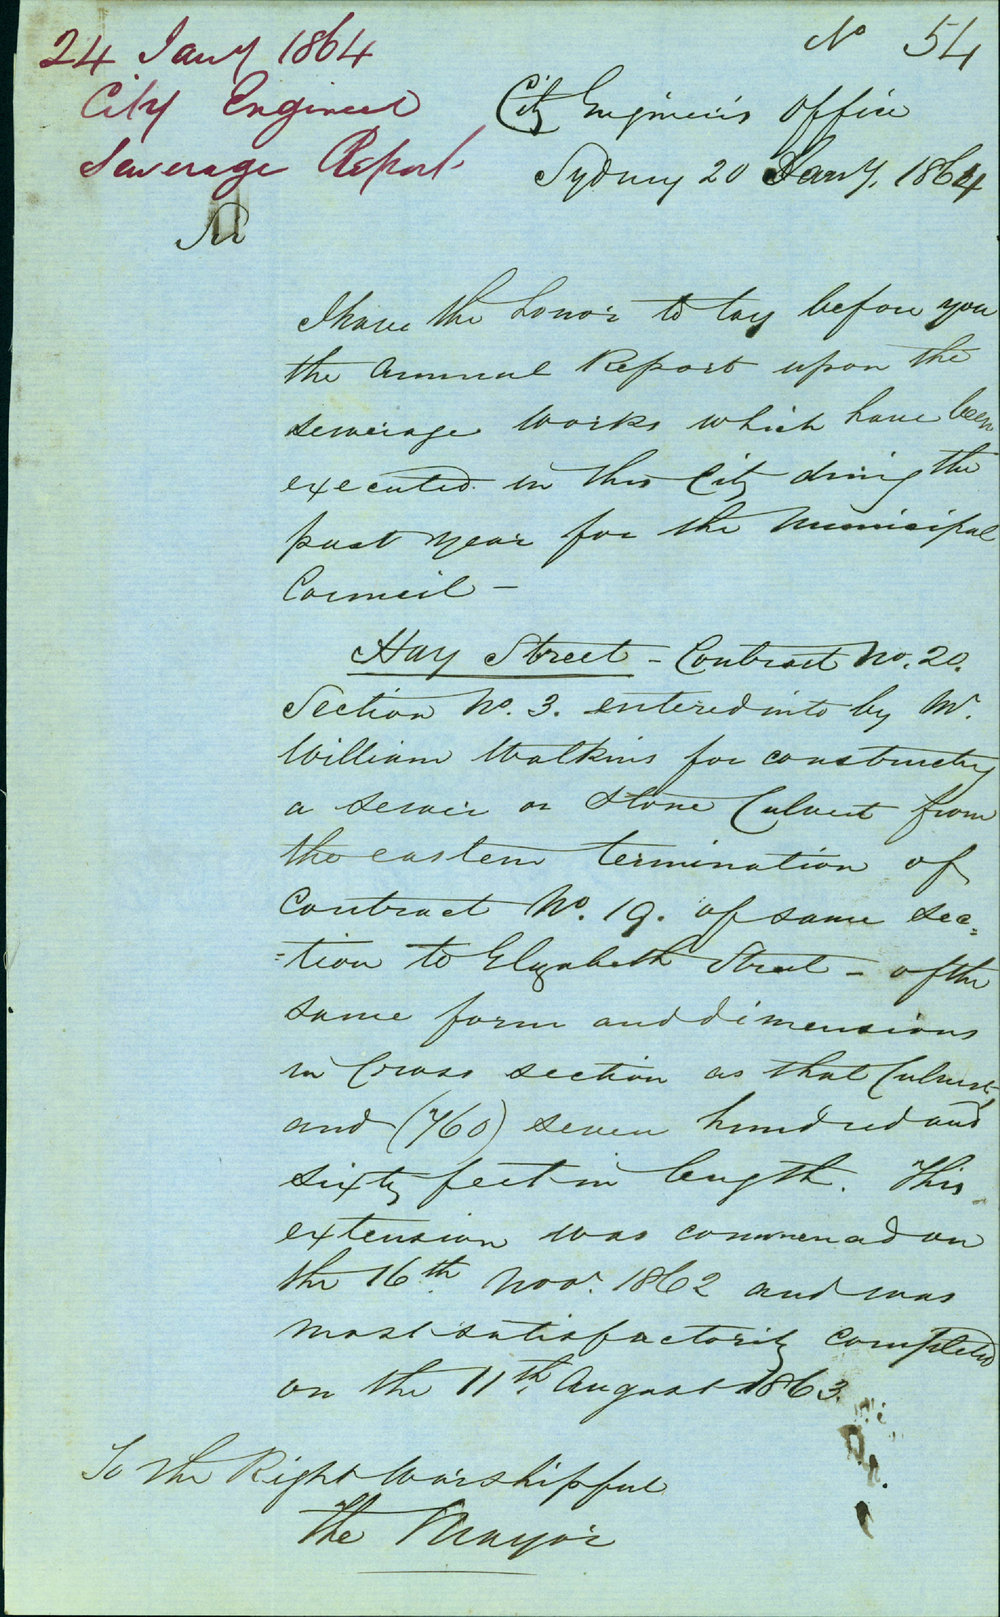 24 Jany 1864
No 54
City Engineer
Sewerage Report
City Engineer's Office
Sydney 20 Jany. 1864
Sir
I have the honor to lay before you
the Annual Report upon the
sewerage works which have been
executed in this City during the
past year for the Municipal
Council –
Hay Street – Contract No. 20.
Section No. 3. entered into by Mr.
William Watkins for constructing
a sewer or stone Culvert from
the eastern termination of
Contract No. 19. of same sec=
=tion to Elizabeth Street – of the
same form and dimensions
in Cross section as that Culvert,
and (760) seven hundred and
sixty feet in length. This
extension was commenced on
the 16th Novr. 1862 and was
most satisfactorily completed
on the 11th August 1863.
To the Right Worshipful
The Mayor